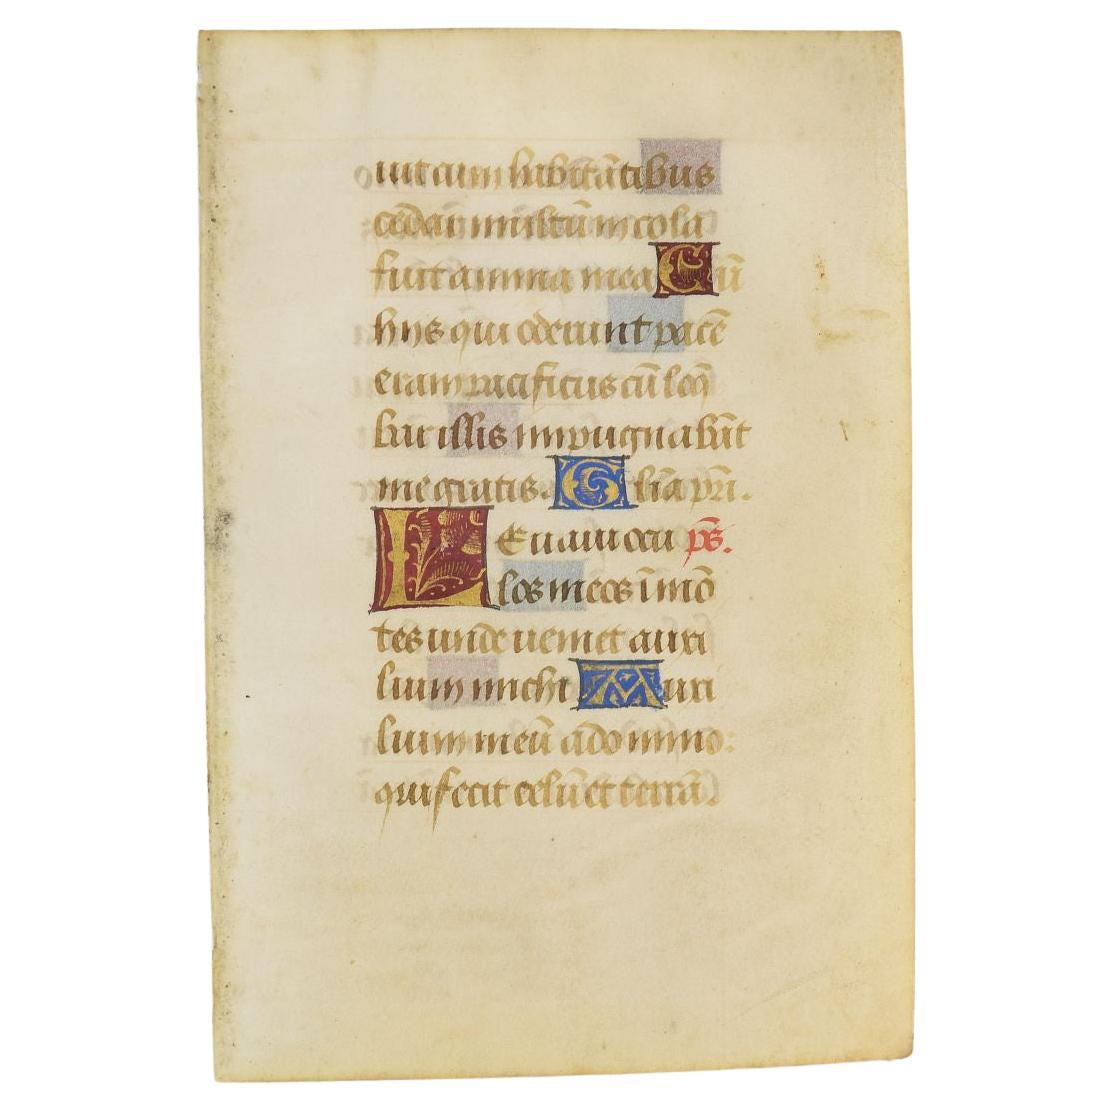 uit cum habitãtibus
cedar multũ incola
fuit anima mea Cũ
hijs qui oderunt pacẽ
eram pacificus cũ loq̃
bar illis impugnabãt
me gratis. Glia pr̃i.
LEvaui ocu ps̃.
los meos ĩ mõ
tes unde veniet auxi
lium michi Auxi
lium meũ a domino:
qui fecit celũ et terrã.